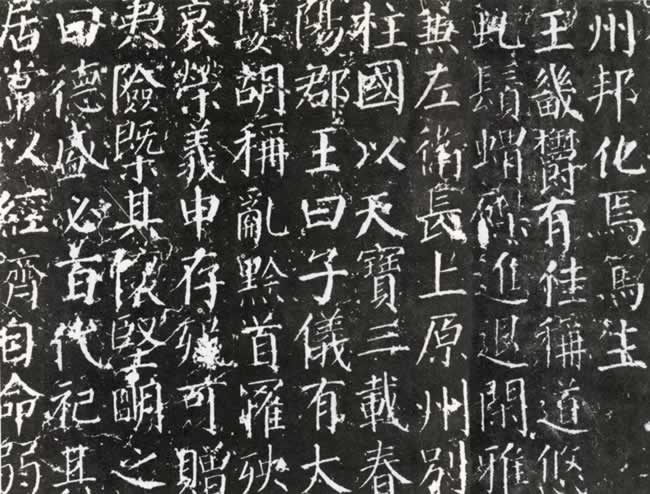 州邦化焉篤生
王畿欝有佳稱道悠
虬鬚蝟磔進退閑雅
兼左衛長上原州別
柱國以天寶三載春
陽郡王曰子儀有大
胡稱亂黔首罹殃
哀榮義申存殁可贈
夷險旣其懷堅明之
曰德盛必百代祀其
居嘗以經濟自命弱